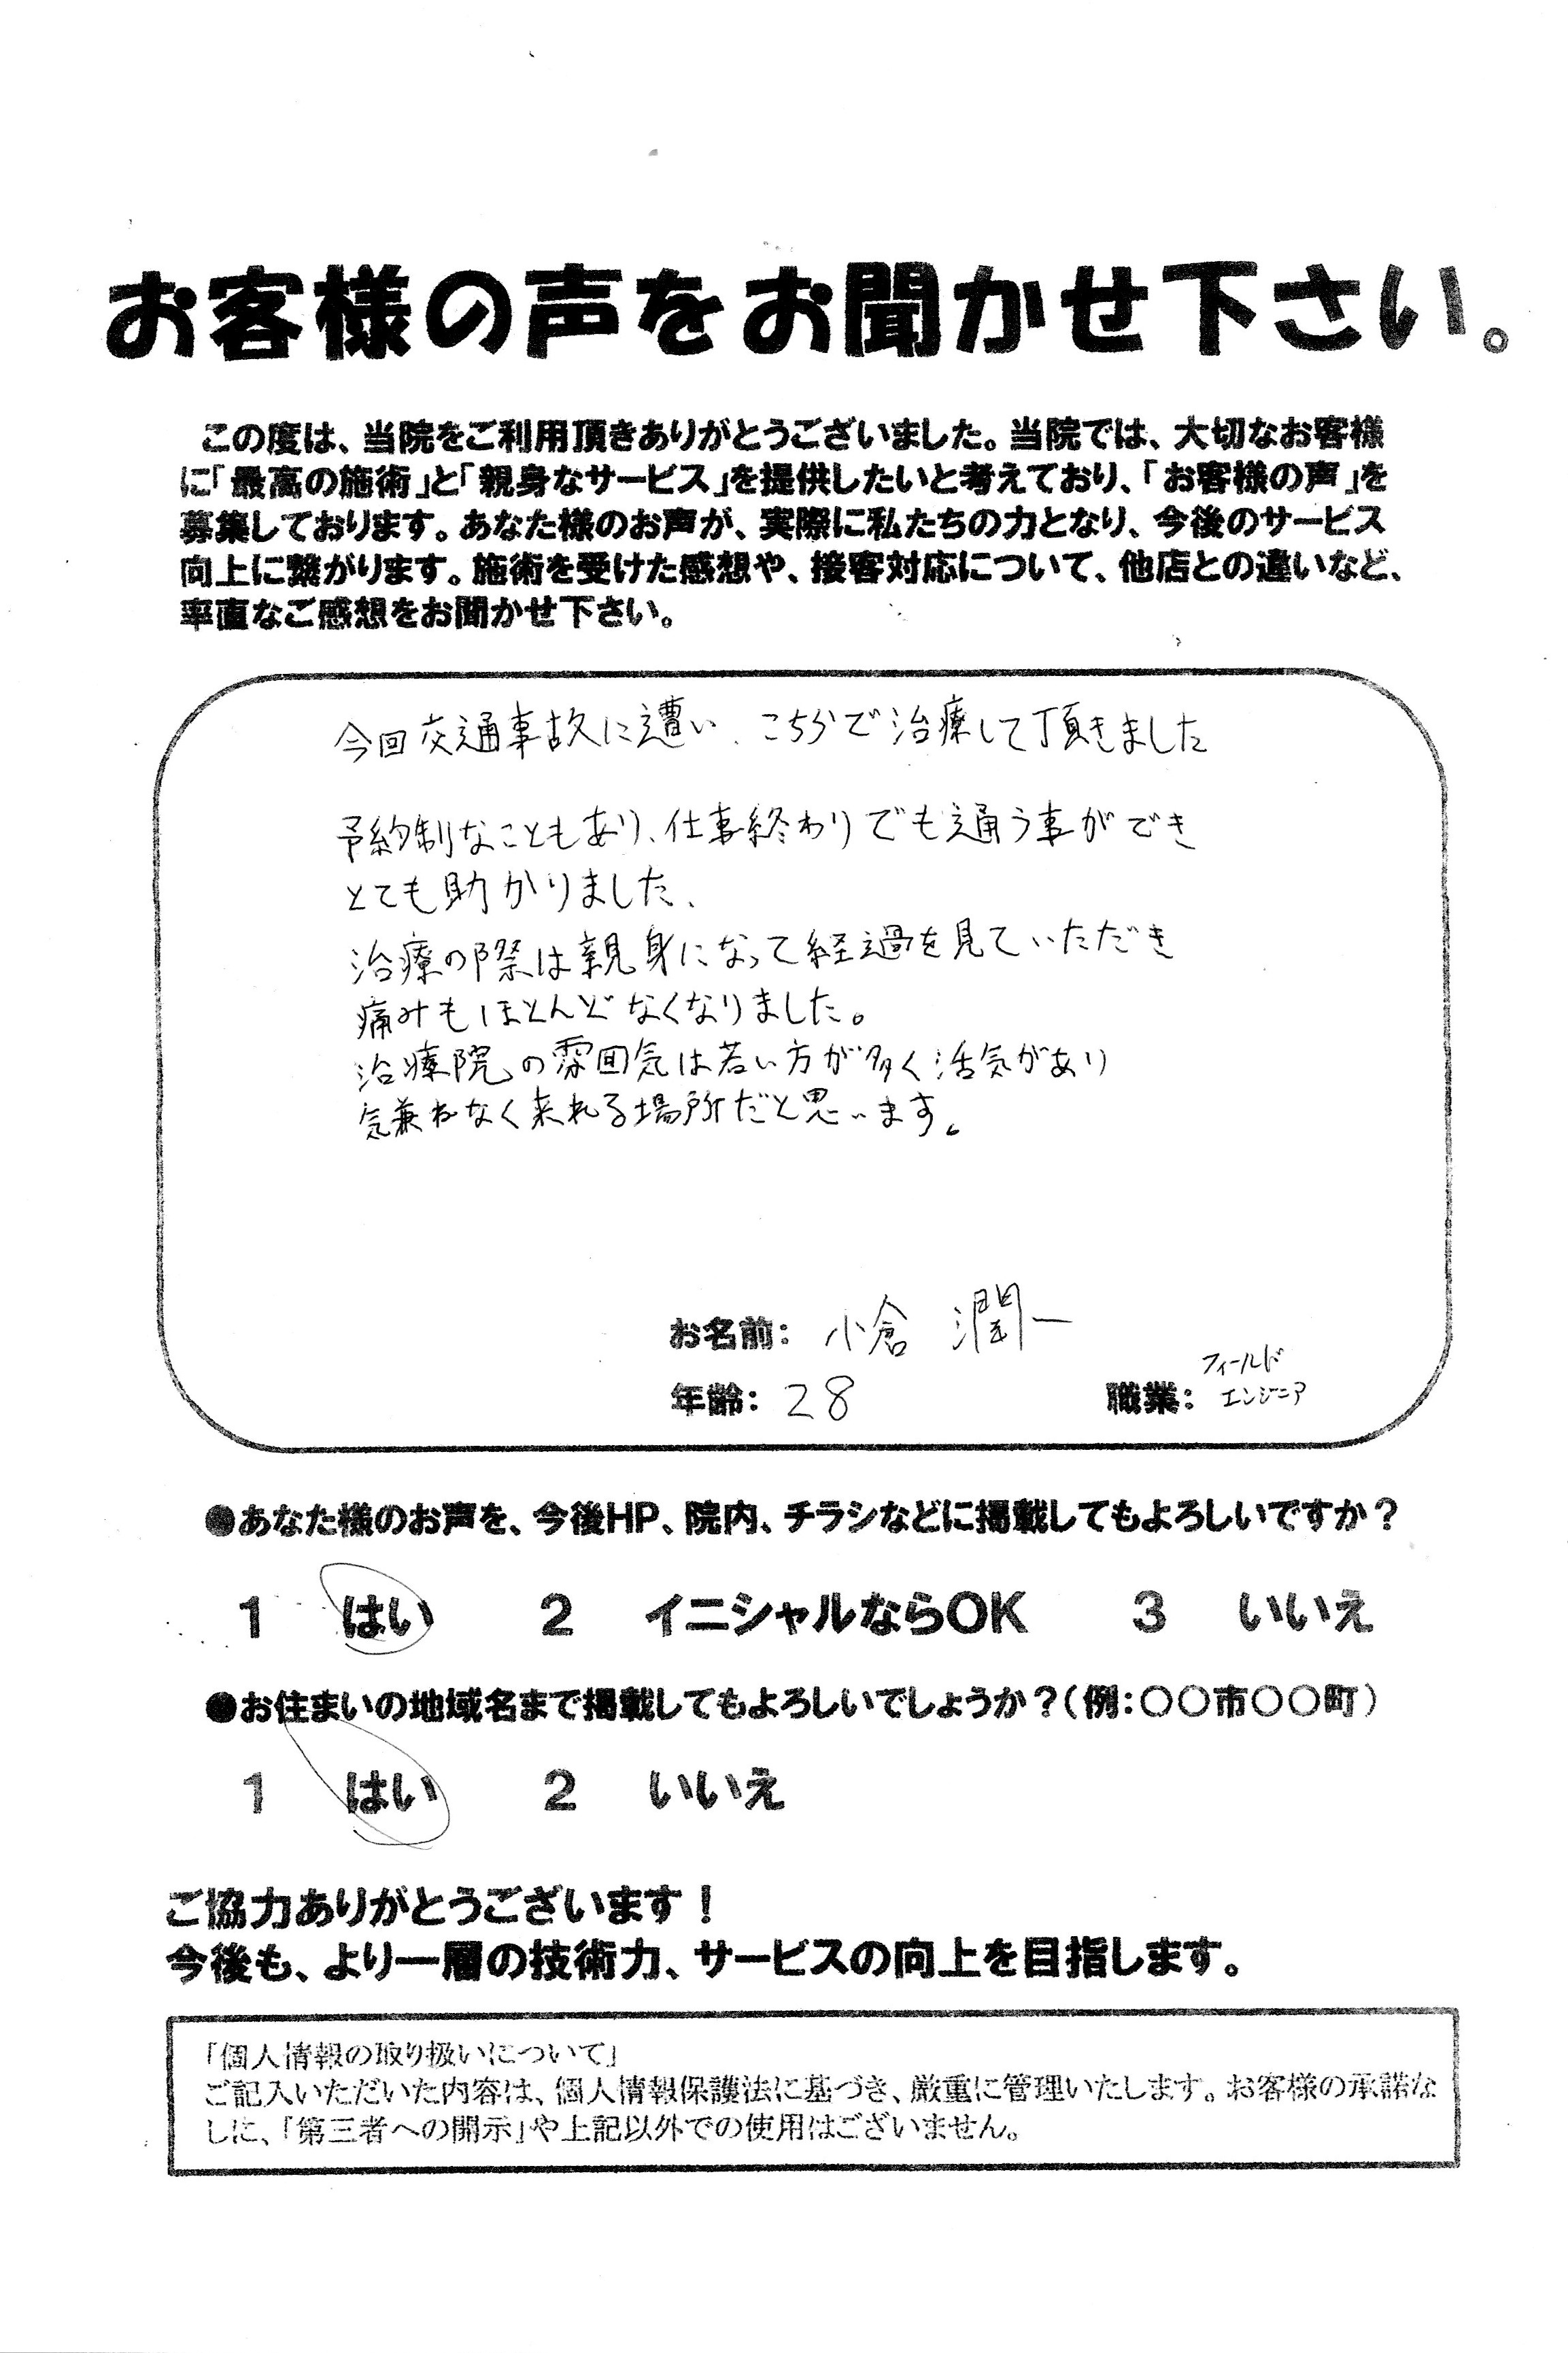 お客様の声をお聞かせ下さい。
この度は、当院をご利用頂きありがとうございました。当院では、大切なお客様
に「最高の施術」と「親身なサービス」を提供したいと考えており、「お客様の声」を
募集しております。あなた様のお声が、実際に私たちの力となり、今後のサービス
向上に繋がります。施術を受けた感想や、接客対応について、他店との違いなど、
率直なご感想をお聞かせ下さい。
今回交通事故に遭い、こちらで治療して頂きました
予約制なこともあり、仕事終わりでも通う事ができ
とても助かりました、
治療の際は親身になって経過を見ていただき
痛みもほとんどなくなりました。
治療院の雰囲気は若い方が多く活気があり
気兼ねなく来れる場所だと思います。
お名前: 小倉 潤一
年齢: 28 職業: フィールドエンジニア
●あなた様のお声を、今後HP、院内、チラシなどに掲載してもよろしいですか?
1 はい 2 イニシャルならOK 3 いいえ
●お住まいの地域名まで掲載してもよろしいでしょうか?(例:〇〇市〇〇町)
1 はい 2 いいえ
ご協力ありがとうございます!
今後も、より一層の技術力、サービスの向上を目指します。
「個人情報の取り扱いについて」
ご記入いただいた内容は、個人情報保護法に基づき、厳重に管理いたします。お客様の承諾な
しに、「第三者への開示」や上記以外での使用はございません。